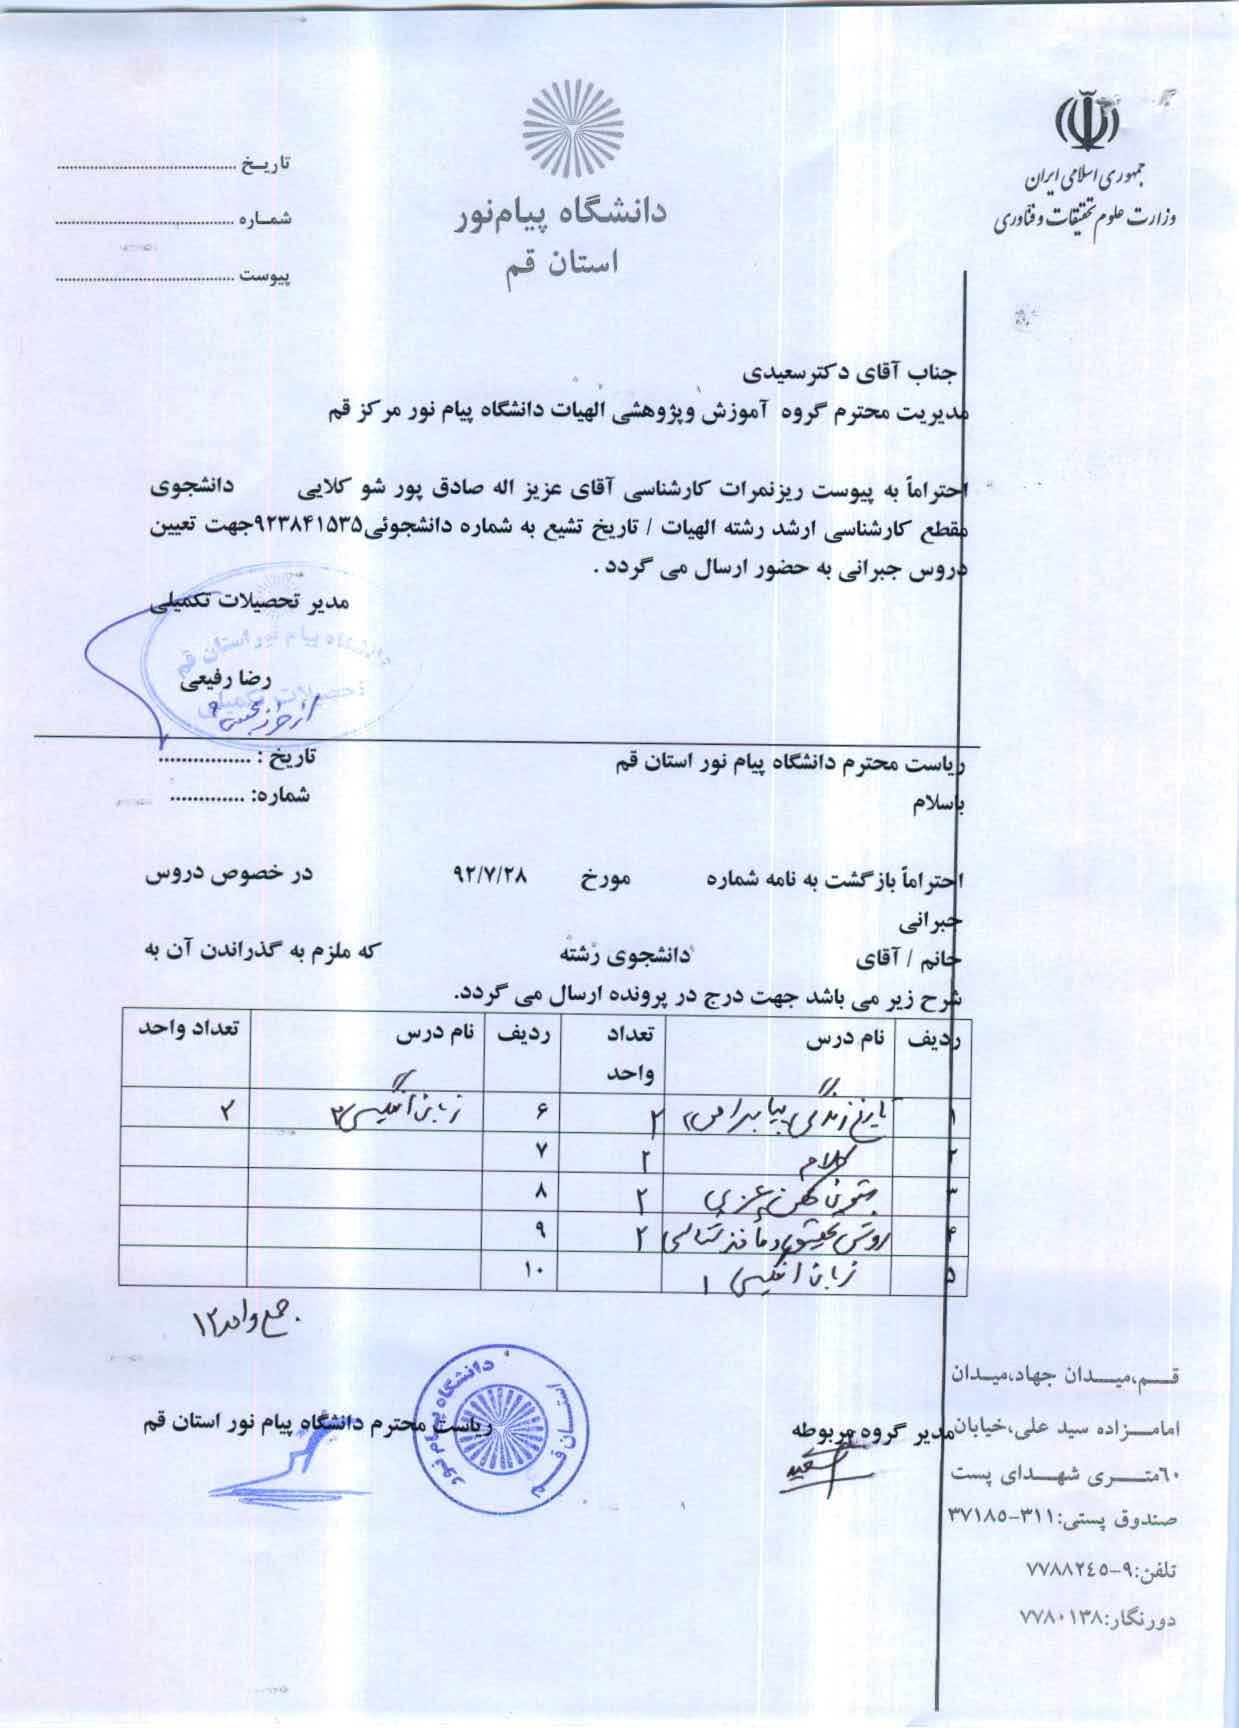 جمهوری اسلامی ایران
وزارت علوم تحقیقات و فناوری
دانشگاه پیام‌نور
استان قم
تاریخ ............................................
شماره ............................................
پیوست ............................................
جناب آقای دکترسعیدی
مدیریت محترم گروه آموزش وپژوهشی الهیات دانشگاه پیام نور مرکز قم
احتراماً به پیوست ریزنمرات کارشناسی آقای عزیز اله صادق پور شو کلایی دانشجوی
مقطع کارشناسی ارشد رشته الهیات / تاریخ تشیع به شماره دانشجوئی۹۲۳۸۴۱۵۳۵جهت تعیین
دروس جبرانی به حضور ارسال می گردد .
مدیر تحصیلات تکمیلی
دانشگاه پیام نور استان قم
تحصیلات تکمیلی
رضا رفیعی
ریاست محترم دانشگاه پیام نور استان قم
تاریخ : ................
باسلام
شماره: .............
احتراماً بازگشت به نامه شماره مورخ ۹۲/۷/۲۸ در خصوص دروس
جبرانی
خانم / آقای دانشجوی رشته که ملزم به گذراندن آن به
شرح زیر می باشد جهت درج در پرونده ارسال می گردد.
ردیف نام درس تعداد واحد ردیف نام درس تعداد واحد
۱ تاریخ زندگی پیامبر اسلام ۲ ۶ زبان انگلیسی ۲ ۲
۲ کلام ۲ ۷
۳ متون کهن عربی ۲ ۸
۴ روش تحقیق و مأخذ شناسی ۲ ۹
۵ زبان انگلیسی ۱ ۱۰
جمع واحد ۱۲
مدیر گروه مربوطه
سعیدی
ریاست محترم دانشگاه پیام نور استان قم
دانشگاه پیام نور
استان قم
قم،میدان جهاد،میدان
امامزاده سید علی،خیابان
۶۰متری شهدای پست
صندوق پستی:۳۱۱-۳۷۱۸۵
تلفن:۹-۷۷۸۸۲۴۵
دورنگار:۷۷۸۰۱۳۸